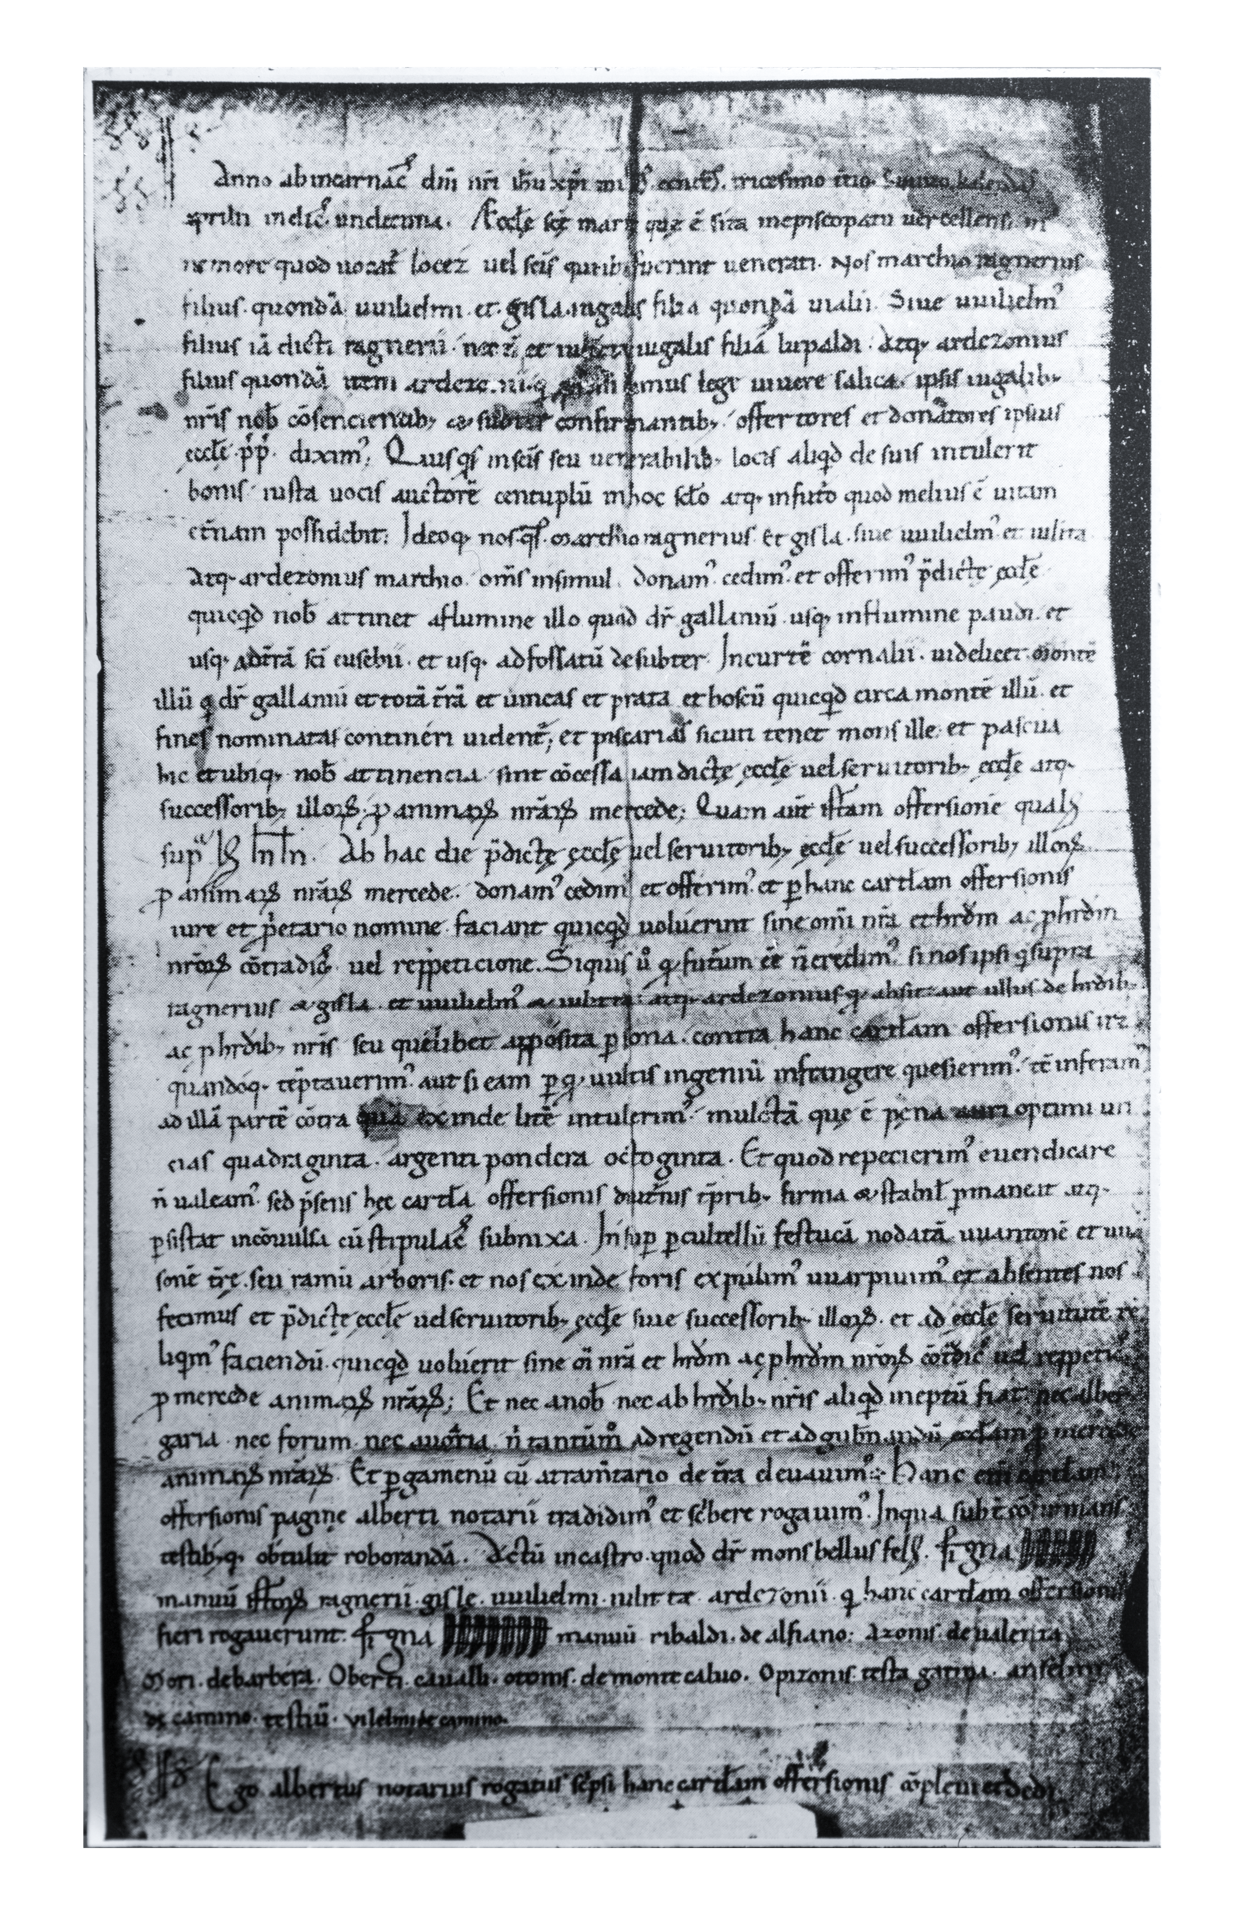 Anno ab incarnač dñi nri ihu xpi centeš. tricesimo ttio. kalendis
aprilis indič undecima. Æccłe scę marię quę ē sita inepiscopatu uercellensi in
nemore quod uocat̃ locez uel scis qui ibi fuerint uenerati. Nos marchio ragnerius
filius quondā uuilielmi et gisla iugalis filia quondā uialii. Siue uuilielm᾿
filius iā dicti ragnerii nec ñ et iugalis filia lupaldi. Atq; ardezonius
filius quondā item lege uiuere salica. ipsis iugalib;
nr̄is nob̄ cōsencientib; & subter confirmantib; offertores et donatores ipsius
eccłe p̄p̄. dixim᾿; Quisq̄s inscīs seu uenerabilib; locis aliqd̄ de suis intulerit
bonis iusta uocis auctorē centuplū inhoc scło atq; infuto quod melius ē uitam
et̄nam possidebit; Ideoq; nos marchio ragnerius et gisla. siue uuilielm᾿ et iulita
atq; ardezonius marchio. om̄s insimul donam᾿ cedim᾿ et offerim᾿ p̄dictę ęccłe
quicqd̄ nob̄ attinet aflumine illo quod dr̄ gallanū. usq; influmine paudi. et
usq; adt̄rā sc̄i eusebii. et usq; adfossatū desubter. Incurtē cornalii. uidelicet montē
illū q̄ dr̄ gallanū et totā t̄rā et uineas et prata et boscū quicqd̄ circa montē illū. et
fines nominatas contineri uident̃; et piscarias sicuti tenet mons ille. et pascua
hic et ubiq; nob̄ attinencia sint cōcessa iamdictę ęccłe uel seruitorib; ęccłe atq;
successorib; illoꝝ; ꝑ animaꝝ nrāꝝ mercede; Quam aut̄ istam offersionē
Ab hac die p̄dictę ęccłe uel seruitorib; ęccłe uel successorib; illoꝝ
ꝑ animaꝝ nrāꝝ mercede. donam᾿ cedim᾿ et offerim᾿. et ꝑ hanc cartłam offersionis
iure et p̄etario nomine faciant quicqd̄ uoluerint sine om̄i nr̄a et hrd̄m ac ꝑhrd̄m
nrōꝝ cōtradič uel repp̄eticione. Siquis ū q̄ futurum eē ñ credim᾿. si nos ipsi q̄ supra
ragnerius & gisla. et uuilielm᾿ & iulitta atq; ardezonius q̄ absit aut ullus de hrdib;
ac ꝑ hrdib; nr̄is seu quelibet apposita ꝑsona. contra hanc cartłam offersionis ire
quandoq; tēptauerim᾿ aut si eam ꝑ q̄uis ingeniū infrangere quesierim᾿. tē inferam᾿
ad illā partē cōtra quā exinde litē intulerim᾿. mulctā que ē pęna auri optimi un
cias quadraginta. argenti pondera octoginta. Et quod repecierim᾿ euendicare
ñ ualeam᾿. sed p̄sens hęc cartła offersionis firma & stabił ꝑmaneat atq;
ꝑsistat incōuulsa cū stipulač subnixa. Insup̄ ꝑ cultellū festucā nodatā uuantonē et uua
sonē t̄re seu ramū arboris. et nos exinde foris expulim᾿ uuarpiuim᾿ et absentes nos
fecimus et p̄dictę ęccłe uel seruitorib; ęccłe siue successorib; illoꝝ. et ad ęccłe seruitutē re
liqm᾿ faciendū. quicqd̄ uoluerit sine oī nr̄a et hrd̄m ac ꝑhrd̄m nrōꝝ cōtdič uel
ꝑ mercede animaꝝ nrāꝝ; Et nec anob̄ nec ab hrdib; nr̄is aliqd̄ ineptū fiat. nec alber
garia. nec forum. nec ñ tantūm° adregendū et adgub̄nandū ꝑ mercede
animaꝝ nrāꝝ. Et ꝑgamenū cū atram̄tario de t̄ra eleuauim᾿. Hanc
offersionis pagine alberti notarii tradidim᾿ et sc̄bere rogauim᾿. Inqua
testib;q; obtulit roborandā. Actū incastro quod dr̄ mons bellus. Signa
manuū ragnerii. gisle. uuilielmi. iulittę. ardezonii. q̄ hanc cartłam offersionis
fieri rogauerunt. Signa manuū ribaldi. de alfiano. Azonis. deualenta
Mori. debarbera. Oberti. caualli. otonis. de monte caluo. Opizonis testa gatina. anselmi
de camino. testiū. vilelmi de camino.
Ego albertus notarius rogatus sc̄psi hanc cartłam offersionis cōpleui et dedi